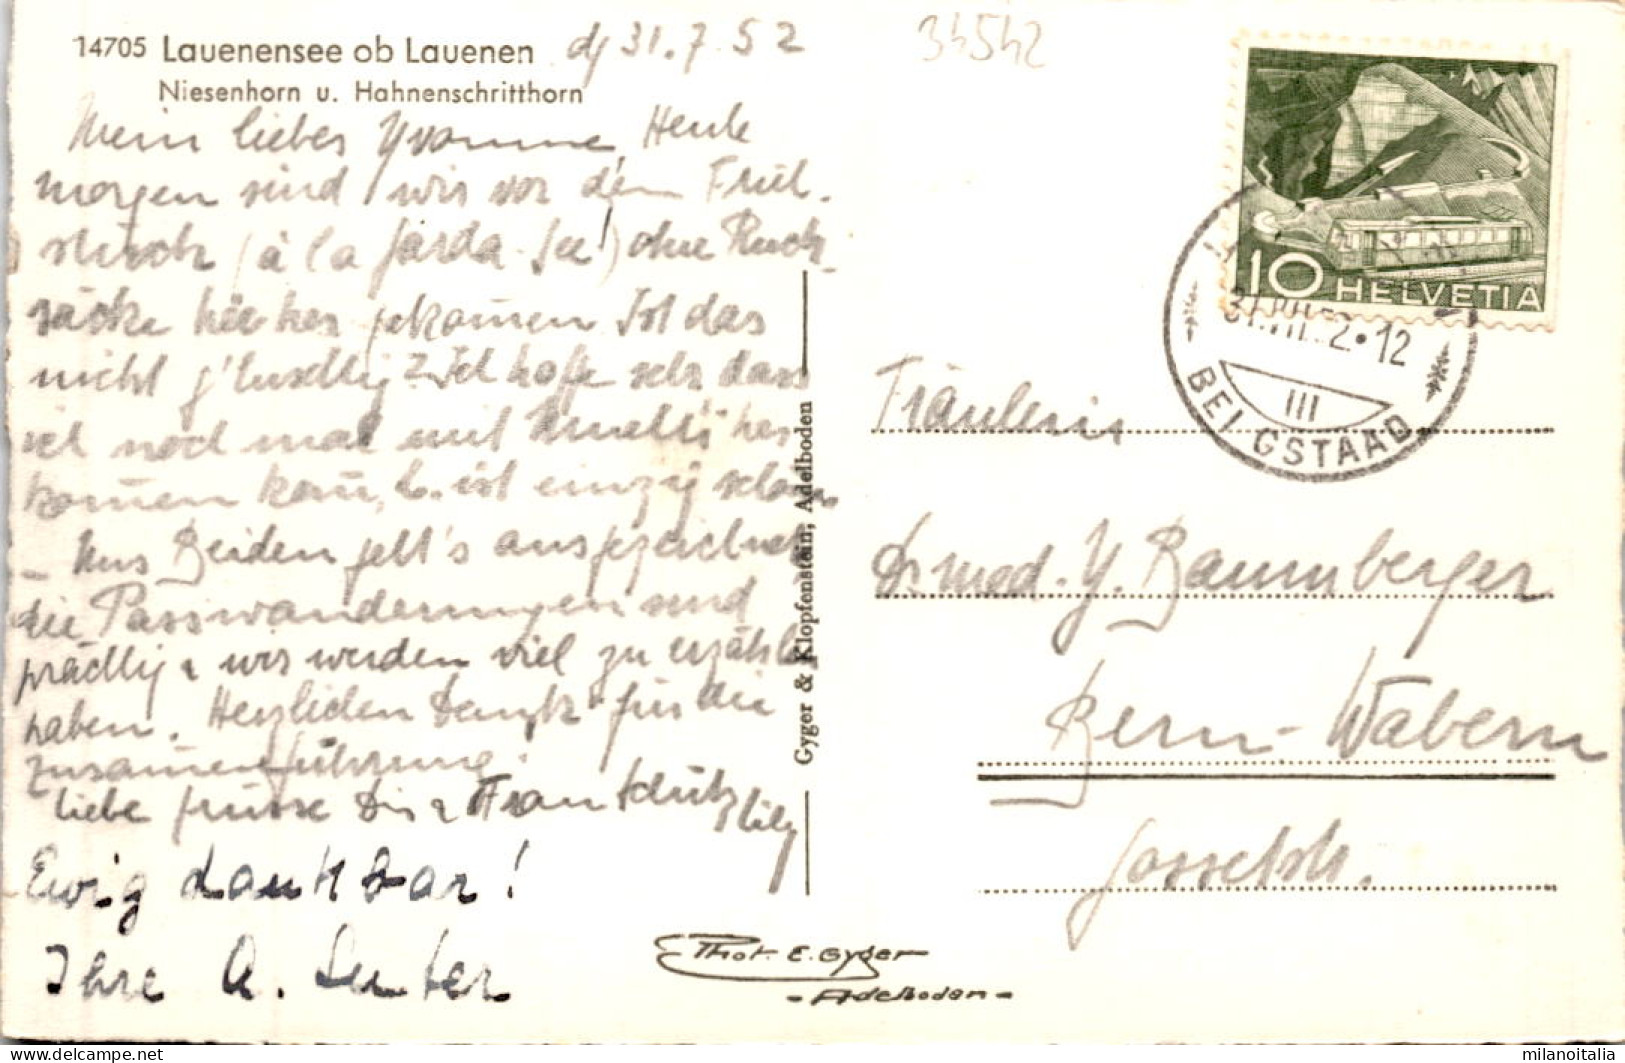 14705 Lauenensee ob Lauenen
Niesenhorn u. Hahnenschritthorn
31.7.52
34542
Mein liebes Yvonne, Heute
morgen sind wir vor dem Früh-
stück (à la Garda-See!) ohne Ruck-
säcke hierher gekommen Ist das
nicht g'luschtig? Ich hoffe sehr dass
ich noch mal mit her
kommen kann, L. ist einzig schön
Uns Beiden geht's ausgezeichnet
die Passwanderungen sind
prächtig & wir werden viel zu erzählen
haben. Herzlichen Dank für die
zusammenführung.
Liebe Grüsse Dir & Frau Schütz
Lily
Ewig dankbar!
Ihre A. Senter
Gyger & Klopfenstein, Adelboden
Phot. E. Gyger
- Adelboden -
10 HELVETIA
31.VII.52•12
III
BEI GSTAAD
Fräulein
Dr med. Y. Baumberger
Bern-Wabern
Gossetstr.
milanoitalia